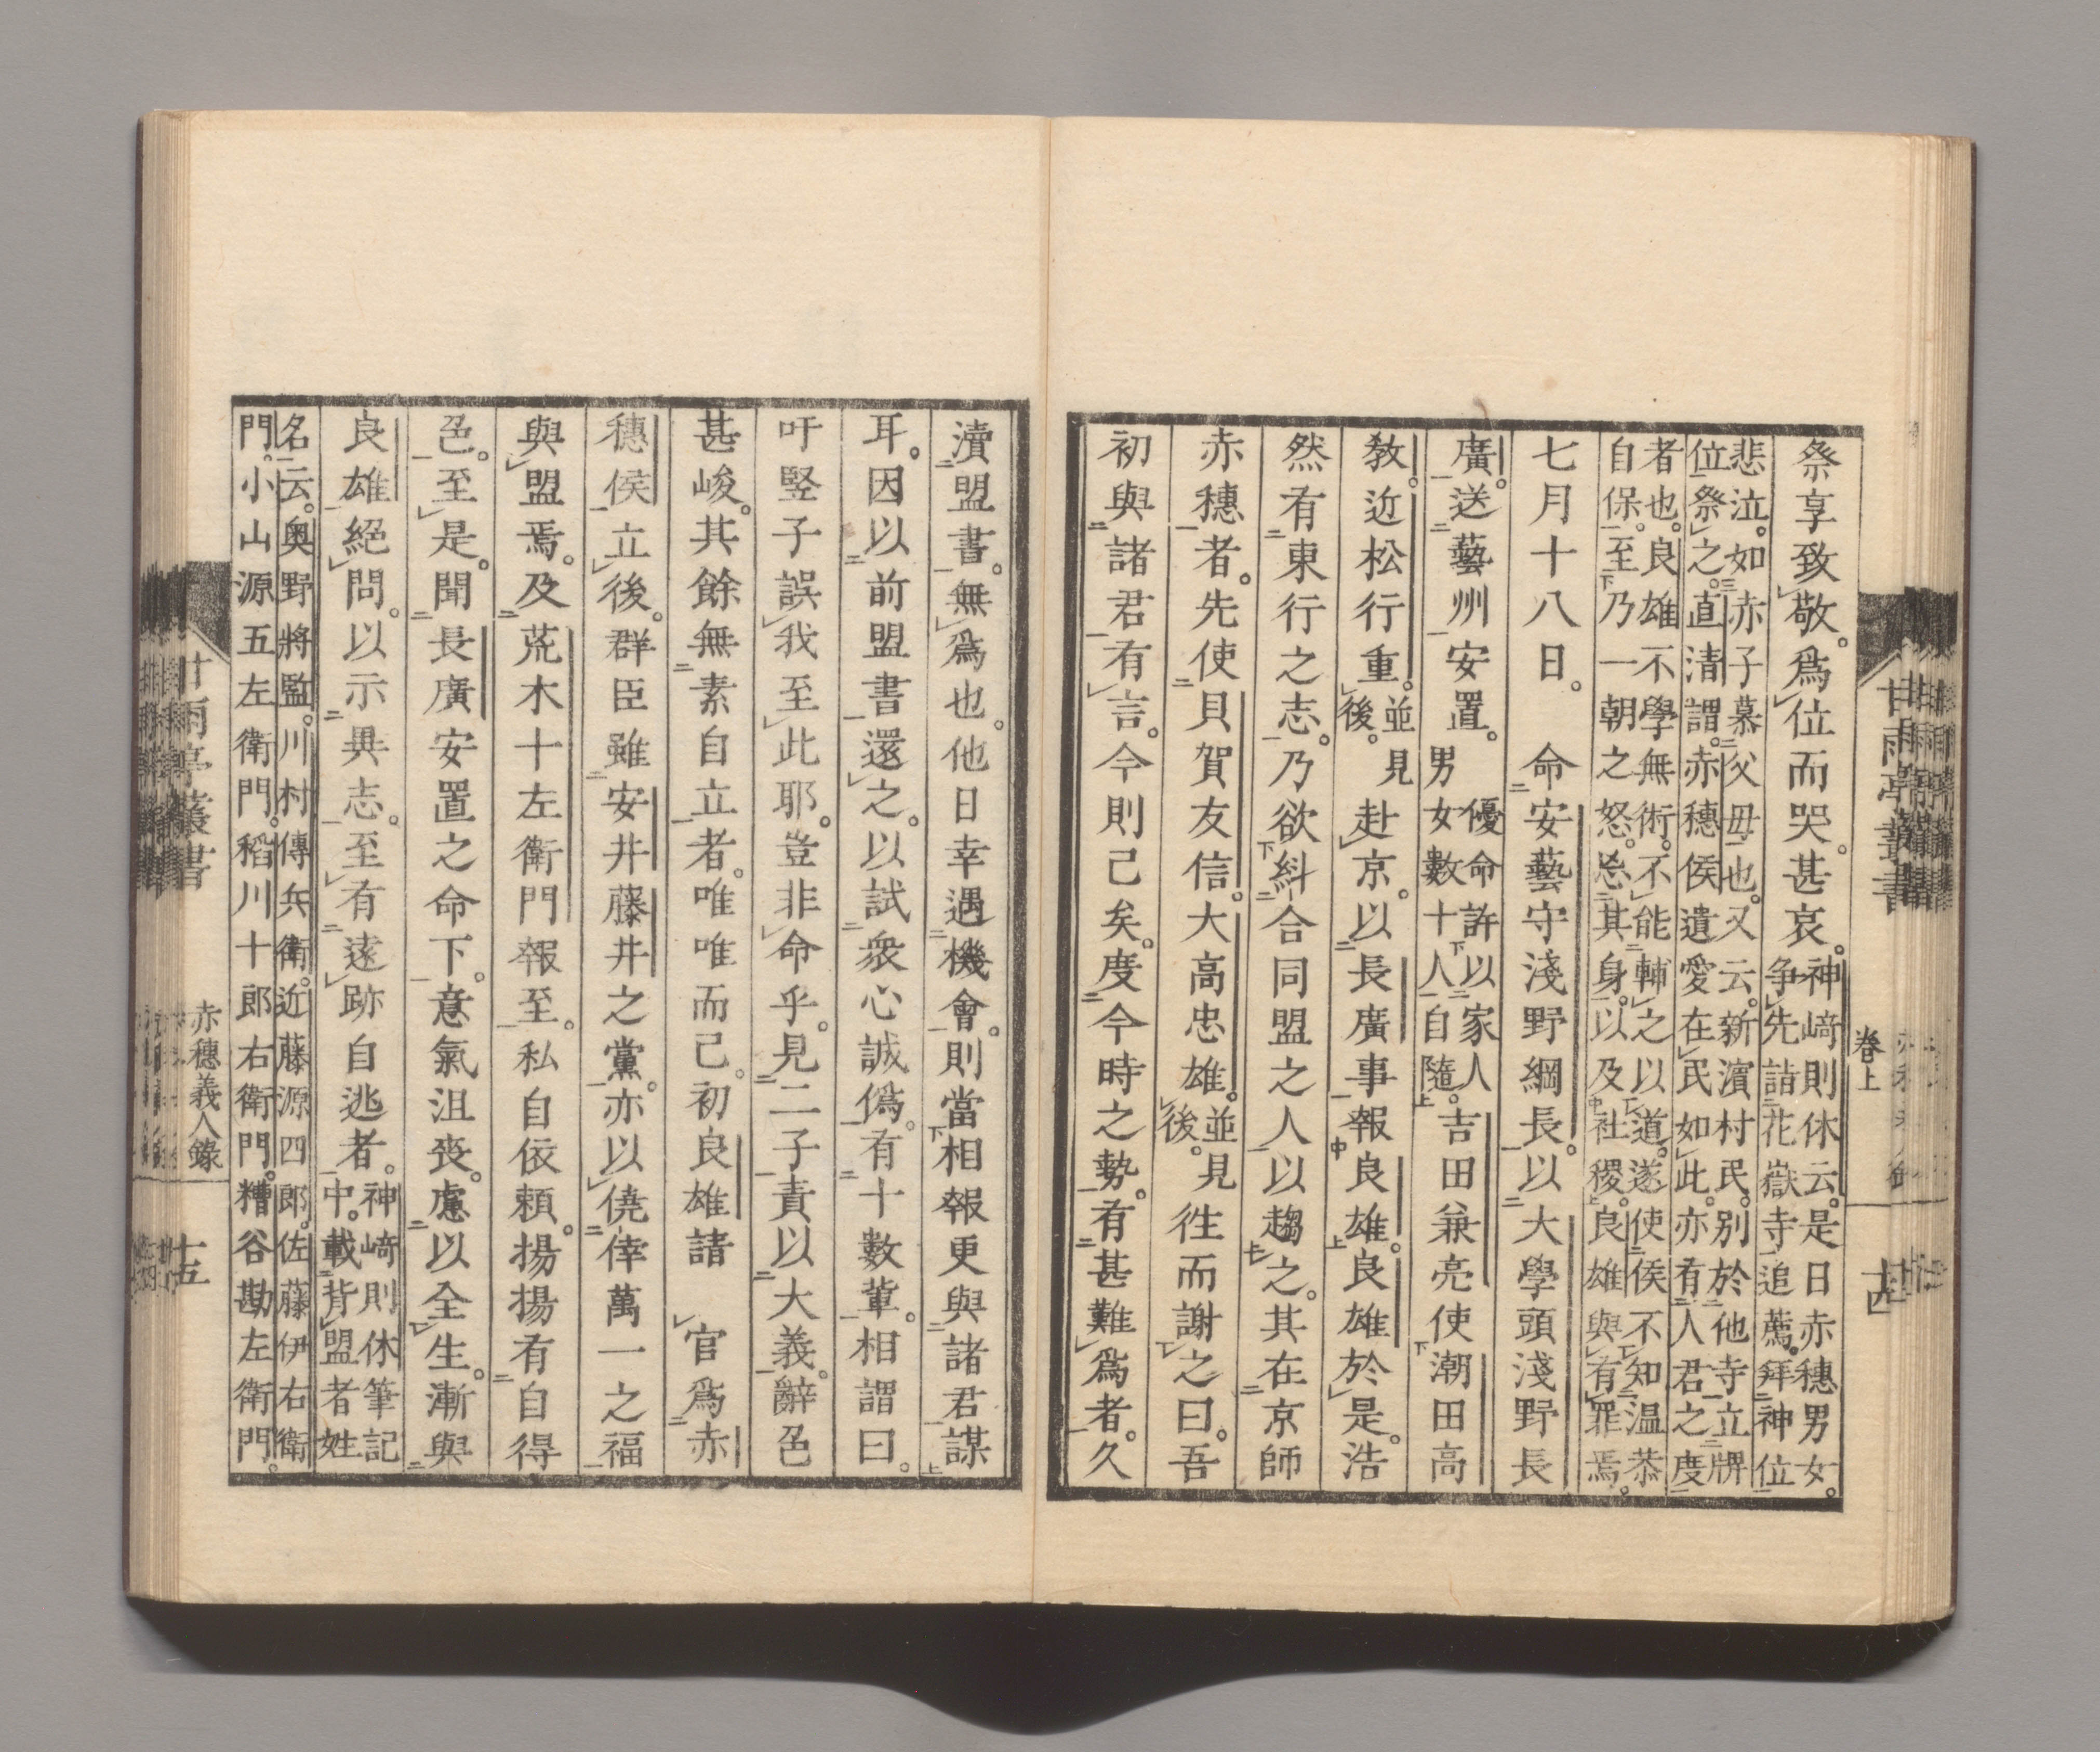 甘雨亭叢書　卷上　十四
祭享致敬。爲位而哭。甚哀。
神﨑則休云。是日赤穗男女。
争先詣花嶽寺。追薦。拜神位。
悲泣。如赤子慕父毋也。又云。新濵村民。別於他寺立牌
位祭之。直清謂。赤穗侯遺愛在民如此。亦有人君之度
者也。良雄不學無術。不能輔之以道。遂使侯不知温恭
自保。至乃一朝之怒。忘其身。以及社稷。良雄與有罪焉。
七月十八日。　命安藝守淺野綱長。以大學頭淺野長
廣。送藝州安置。優命許以家人男女數十人自隨。吉田兼亮使潮田高
敎。近松行重。並見後。赴京。以長廣事報良雄。良雄於是。浩
然有東行之志。乃欲糾合同盟之人以趨之。其在京師
赤穗者。先使貝賀友信。大高忠雄。並見後。徃而謝之曰。吾
初與諸君有言。今則已矣。度今時之勢。有甚難爲者。久
瀆盟書。無爲也。他日幸遇機會。則當相報更與諸君謀
耳。因以前盟書還之。以試衆心誠僞。有十數輩。相謂曰。
吁竪子誤我至此耶。豈非命乎。見二子責以大義。辭色
甚峻。其餘無素自立者。唯唯而已。初良雄諸　官爲赤
穗侯立後。群臣雖安井藤井之黨。亦以僥倖萬一之福
與盟焉。及荒木十左衛門報至。私自依賴。揚揚有自得
色。至是。聞長廣安置之命下。意氣沮喪。慮以全生。漸與
良雄絕問。以示異志。至有遠跡自逃者。神﨑則休筆記
中。載背盟者姓
名云。奥野將監。川村傳兵衛。近藤源四郎。佐藤伊右衛
門。小山源五左衛門。稻川十郎右衛門。糟谷勘左衛門。
甘雨亭叢書　赤穗義人錄　十五